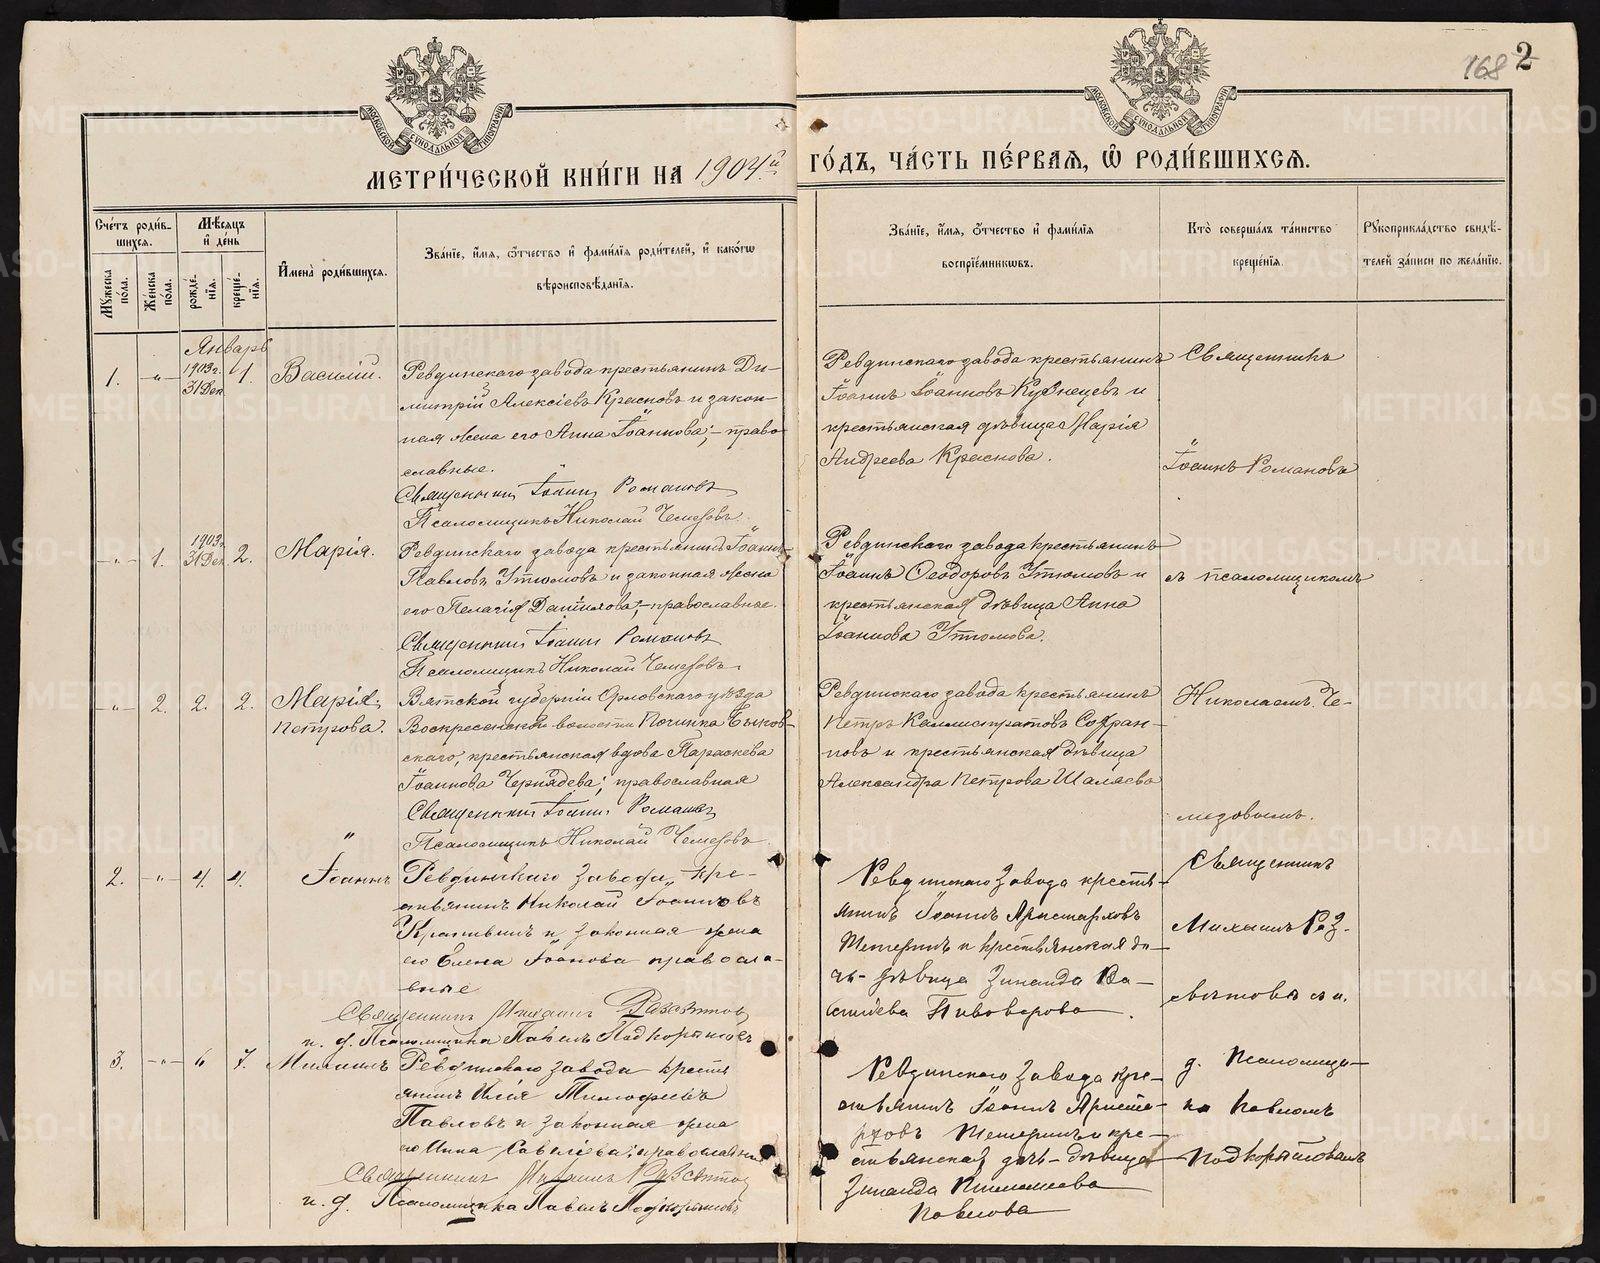 168 2
МОСКОВСКОЙ СѴНОДАЛЬНОЙ ТИПОГРАФІИ
МОСКОВСКОЙ СѴНОДАЛЬНОЙ ТИПОГРАФІИ
МЕТРИ́ЧЕСКОЙ КНИ́ГИ НА 1904й ГО́ДЪ, ЧА́СТЬ ПЕ́РВАЯ, Ѡ РОДИ́ВШИХСЯ.
Сче́тъ роди́в-
шихся.
Мꙋ́жеска по́ла.
Же́нска по́ла.
Мѣ́сяцъ
и҆ де́нь
рожде́-
нїѧ.
креще́-
нїѧ.
И҆мена̀ роди́вшихся.
Зва́нїе, и҆́мѧ, ѻ҆́тчество и҆ фами́лїѧ роди́телей, и҆ како́гѡ
вѣроисповѣ́данїѧ.
Зва́нїе, и҆́мѧ, ѻ҆́тчество и҆ фами́лїѧ
воспрїе́мникѡвъ.
Кто̀ соверша́лъ та́инство
креще́нїѧ.
Рꙋкоприкла́дство свидѣ́-
телей за́писи по жела́нїю.
Январь
1. -"- 1903 г. 31 Дек 1. Василій.
Ревдинскаго завода крестьянинъ Ди-
митрій Алексіевъ Красновъ и закон-
ная жена его Анна Іоаннова; - право
славные.
Священникъ Іоаннъ Романовъ
Псаломщикъ Николай Чемезовъ
Ревдинскаго завода крестьянинъ
Іоаннъ Іоанновъ Кузнецевъ и
крестьянская дѣвица Марія
Андреева Краснова.
Священникъ
Іоаннъ Романовъ
-"- 1. 1903 г. 31 Дек 2. Марія.
Ревдинскаго завода крестьянинъ Іоаннъ
Павловъ Утюмовъ и законная жена
его Пелагія Даніилова; - православные.
Священникъ Іоаннъ Романовъ
Псаломщикъ Николай Чемезовъ
Ревдинскаго завода крестьянинъ
Іоаннъ Ѳеодоровъ Утюмовъ и
крестьянская дѣвица Анна
Іоаннова Утюмова.
съ псаломщикомъ
-"- 2. 2. 2. Марія
Петрова.
Вятской губерніи Орловскаго уѣзда
Воскресенской волости Починка Быков-
скаго, крестьянская вдова Параскева
Іоаннова Чернядева; православная
Священникъ Іоаннъ Романовъ
Псаломщикъ Николай Чемезовъ
Ревдинскаго завода крестьянинъ
Петръ Каллистратовъ Софро-
новъ и крестьянская дѣвица
Александра Петрова Шаляева
Николаемъ Че-
мезовымъ.
2. -"- 4. 4. Іоаннъ
Ревдинскаго завода, кре-
стьянинъ Николай Іоанновъ
и законная жена
его Елена Іоанова правосла-
вные
Священникъ Михаилъ Разсвѣтовъ
и. д. Псаломщика Павелъ Подкорытовъ
Ревдинскаго завода кресть-
янинъ Іоаннъ Аристарховъ
Шемеринъ и крестьянская до-
чь - дѣвица Зинаида Ва-
сильева Пивоварова.
Священникъ
Михаилъ Раз-
свѣтовъ съ и.
3. -"- 6 7. Михаилъ
Ревдинскаго завода кресть
янинъ Илія Тимоѳеевъ
Павловъ и законная жена
его Инна Савельева; православные
Священникъ Михаилъ Разсвѣтовъ
и. д. Псаломщика Павелъ Подкорытовъ
Ревдинскаго завода кре-
стьянинъ Іоаннъ Ариста-
рховъ Шемеринъ и кре-
стьянская дочь - дѣвица
Зинаида
Павлова
д. Псаломщи-
ка Павломъ
Подкорытовымъ
METRIKI.GASO-URAL.RU